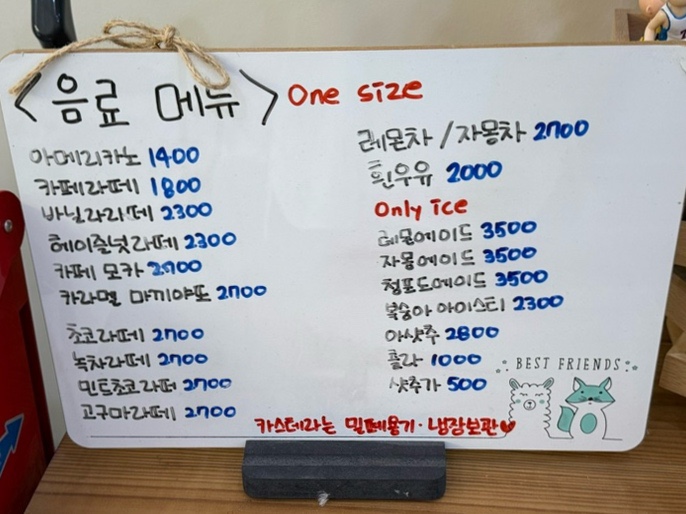 <음료 메뉴> One size
아메리카노 1400
카페라떼 1800
바닐라라떼 2300
헤이즐넛라떼 2300
카페 모카 2700
카라멜 마끼야또 2700
초코라떼 2700
녹차라떼 2700
민트초코라떼 2700
고구마라떼 2700
레몬차 / 자몽차 2700
흰우유 2000
Only ice
레몬에이드 3500
자몽에이드 3500
청포도에이드 3500
복숭아 아이스티 2300
아샷추 2800
콜라 1000
샷추가 500
BEST FRIENDS
카스테라는 밀폐용기·냉장보관♥